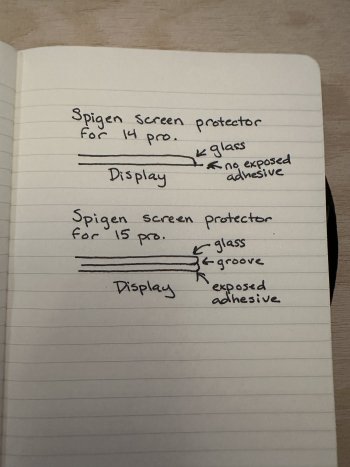 Spigen screen protector
for 14 pro.
glass
no exposed
adhesive
Display
Spigen screen protector
for 15 pro.
glass
groove
Display
exposed
adhesive